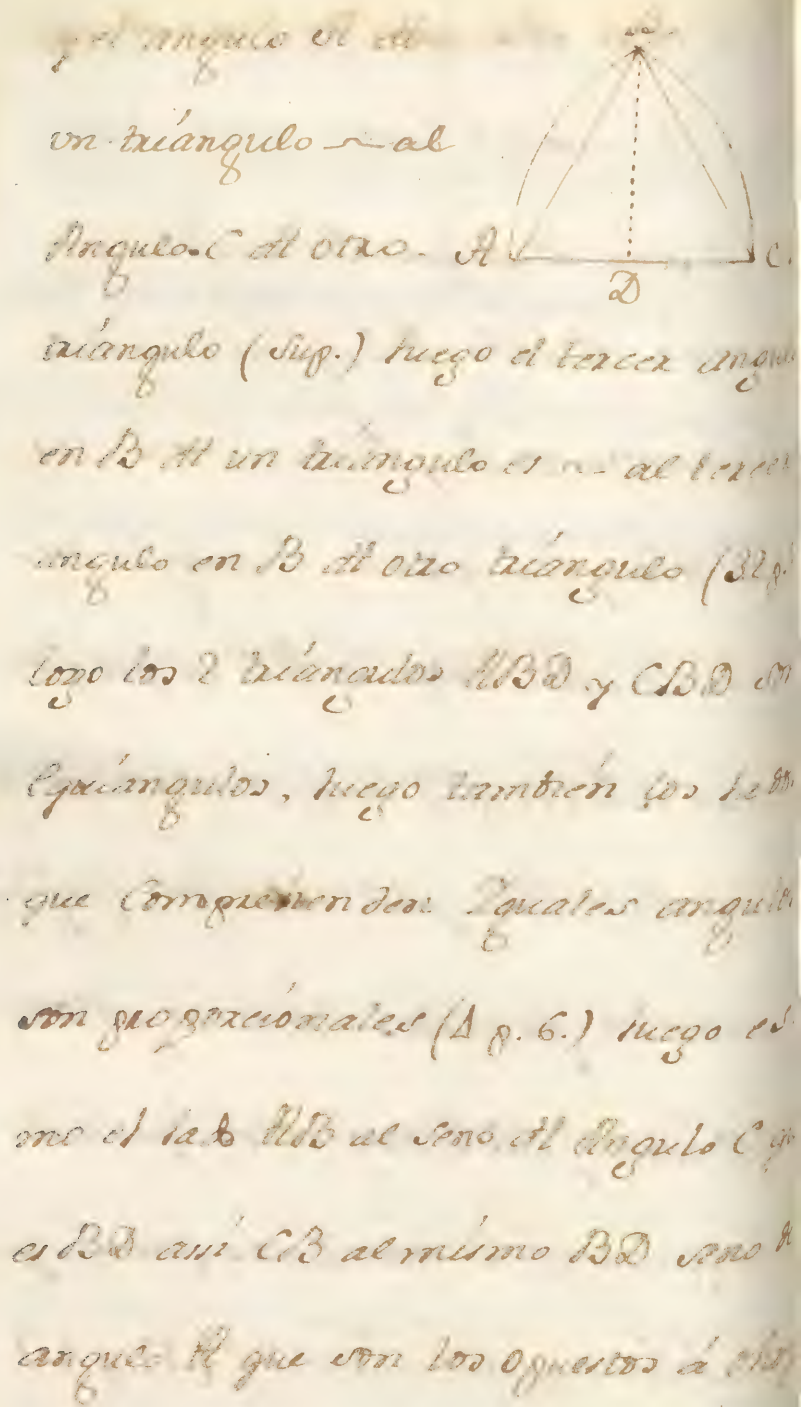 y el angulo A
un triángulo ~ al
Angulo C del otro. A C.
D
triángulo (Sup.) luego el tercer angu
en B del un triángulo es ~ al tercer
angulo en B del otro triángulo (32 p.
logo los 2 triángulos ABD y CBD so
Equiángulos, luego también los
que Comprenden Iguales angulo
son proporcionales (4 p. 6.) luego es
mo el lado AB al seno del Angulo C q
es BD assí CB al mismo BD seno
angulo A que son los opuestos á